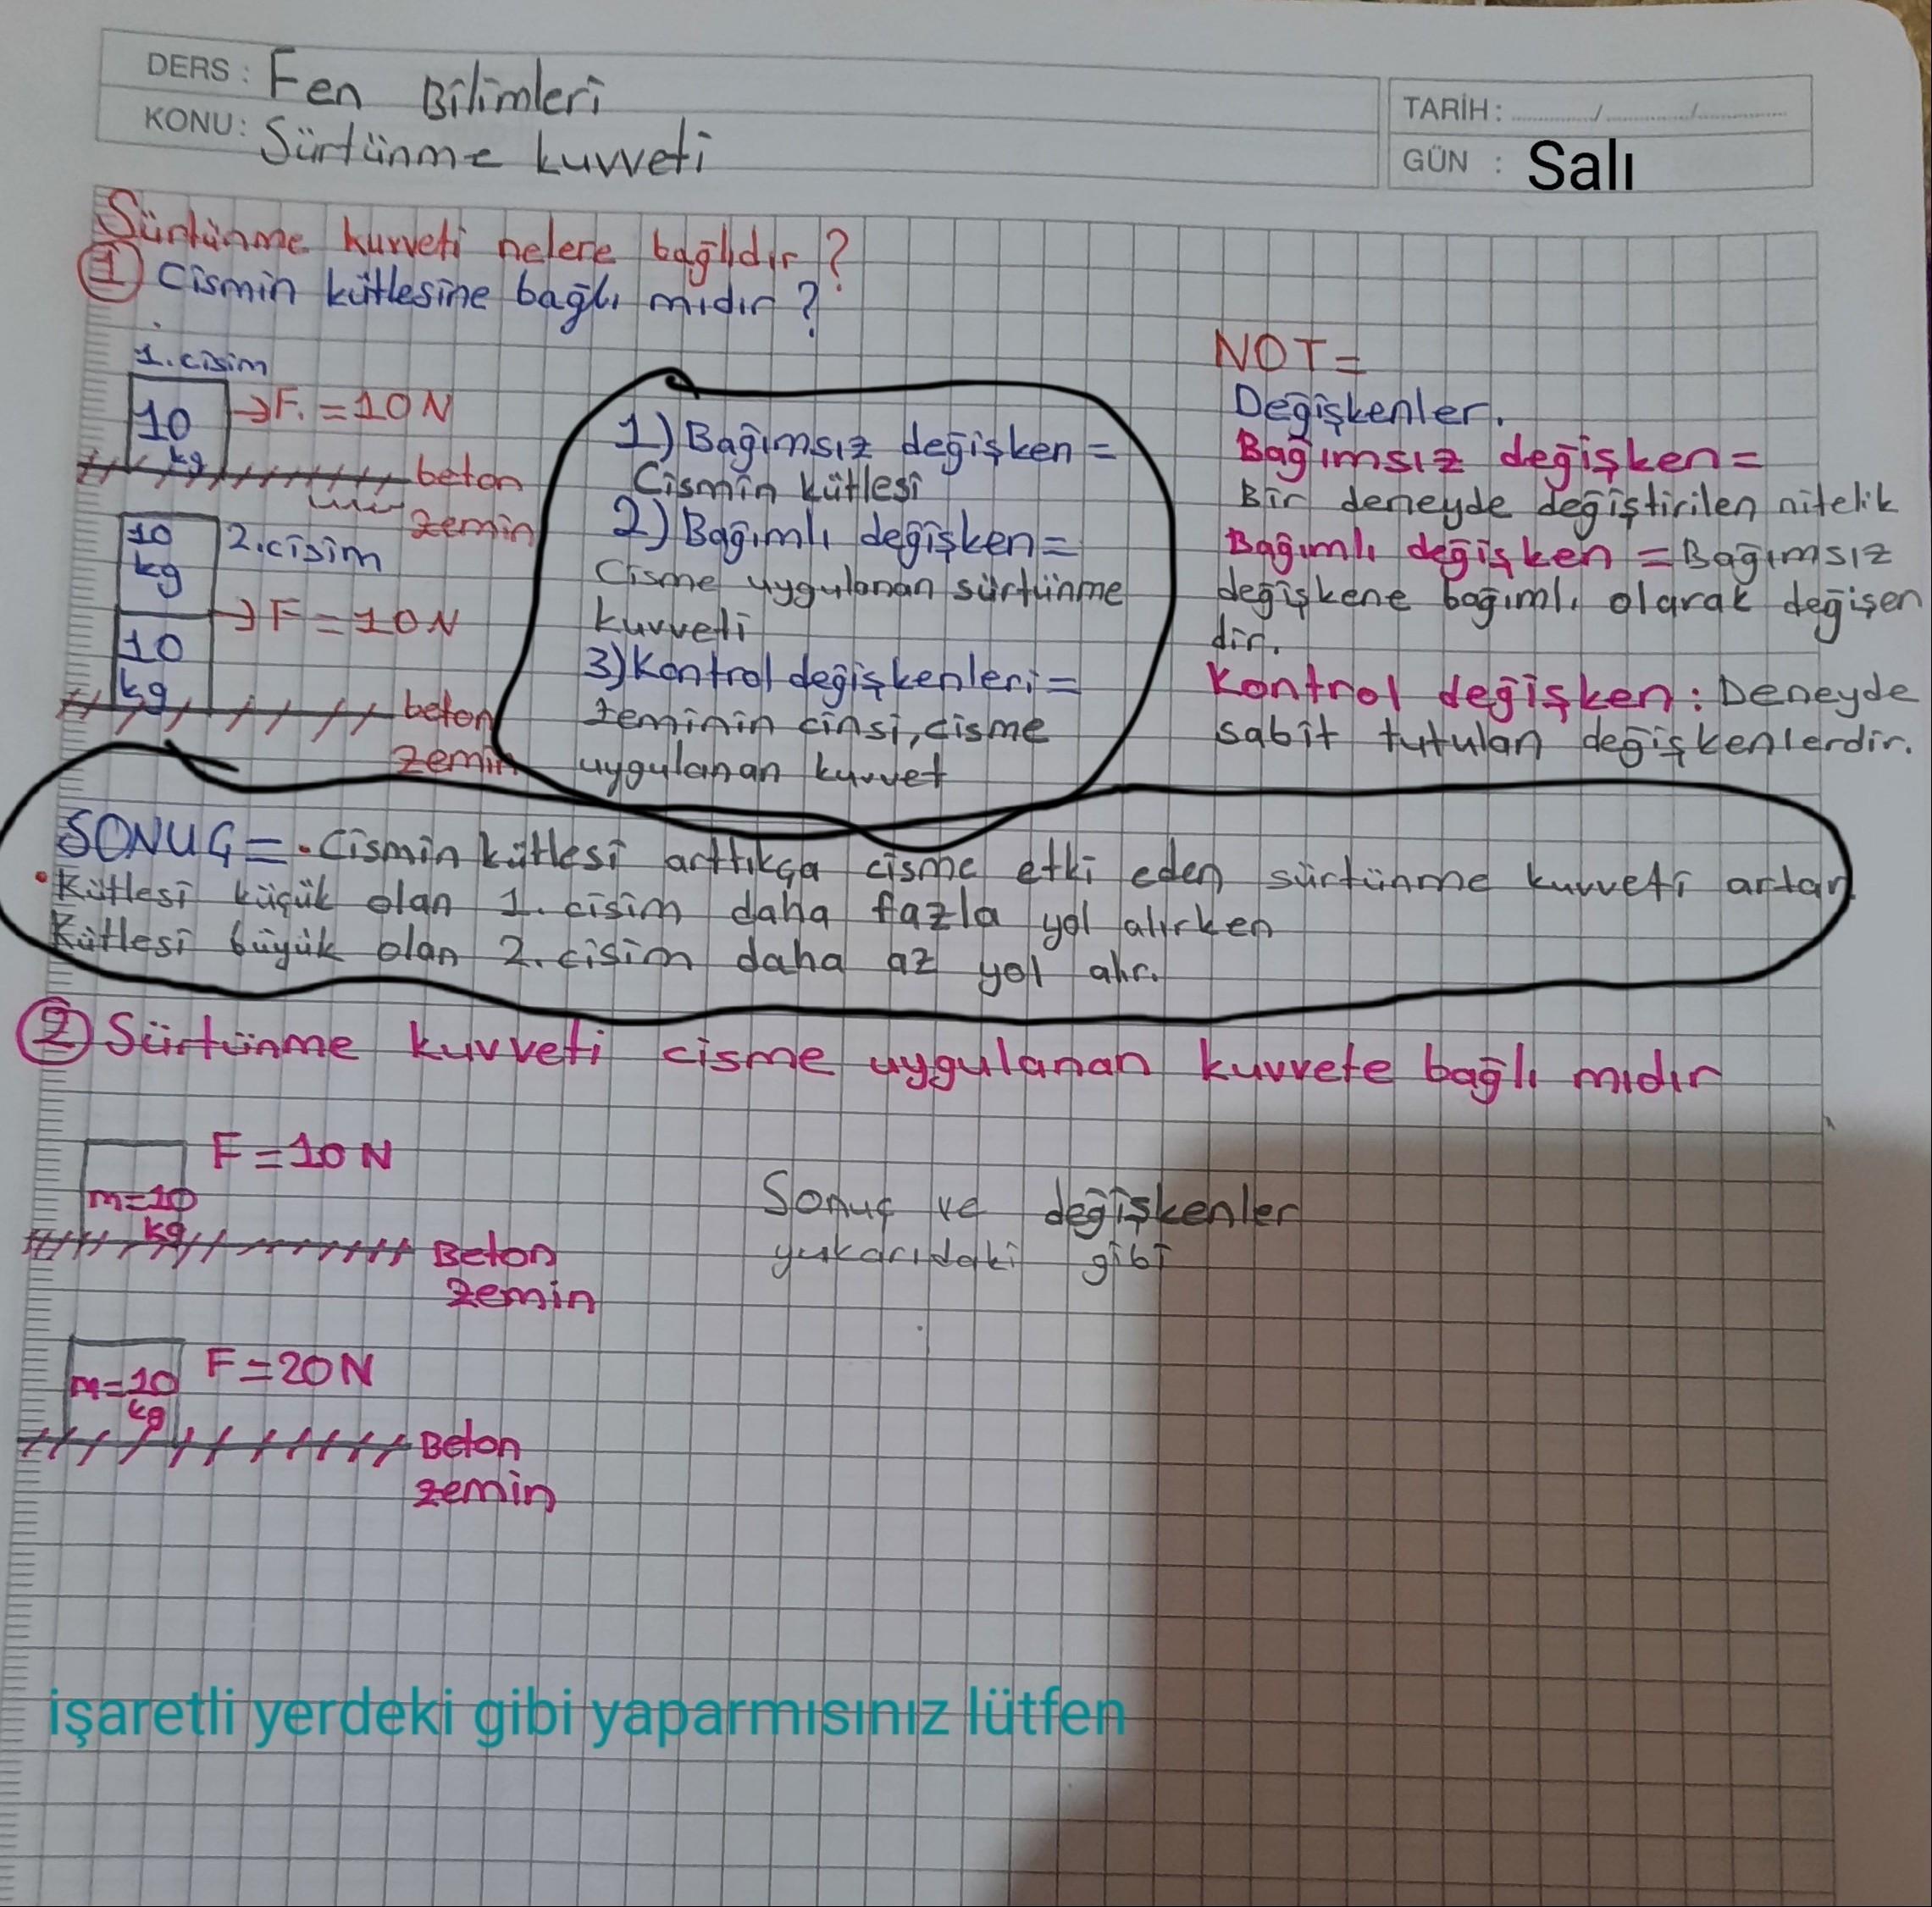 DERS : Fen Bilimleri
KONU: Sürtünme kuvveti
TARİH : ........../........../..........
GÜN : Salı
Sürtünme kuvveti nelere bağlıdır ?
1) Cismin kütlesine bağlı mıdır ?
1. cisim
10 kg
→F. = 10 N
beton
zemin
10 kg
2. cisim
→F = 10 N
10 kg
beton
zemin
1) Bağımsız değişken =
Cismin kütlesi
2) Bağımlı değişken =
Cisme uygulanan sürtünme
kuvveti
3) Kontrol değişkenleri =
zeminin cinsi, cisme
uygulanan kuvvet
NOT =
Değişkenler.
Bağımsız değişken =
Bir deneyde değiştirilen nitelik
Bağımlı değişken = Bağımsız
değişkene bağımlı olarak değişen
dir.
Kontrol değişken : Deneyde
sabit tutulan değişkenlerdir.
SONUÇ = • Cismin kütlesi arttıkça cisme etki eden sürtünme kuvveti artar
• Kütlesi küçük olan 1. cisim daha fazla yol alırken
Kütlesi büyük olan 2. cisim daha az yol alır.
2) Sürtünme kuvveti cisme uygulanan kuvvete bağlı mıdır
F = 10 N
m=10
kg
Beton
zemin
Sonuç ve değişkenler
yukarıdaki gibi
F = 20 N
m=10
kg
Beton
zemin
işaretli yerdeki gibi yaparmısınız lütfen